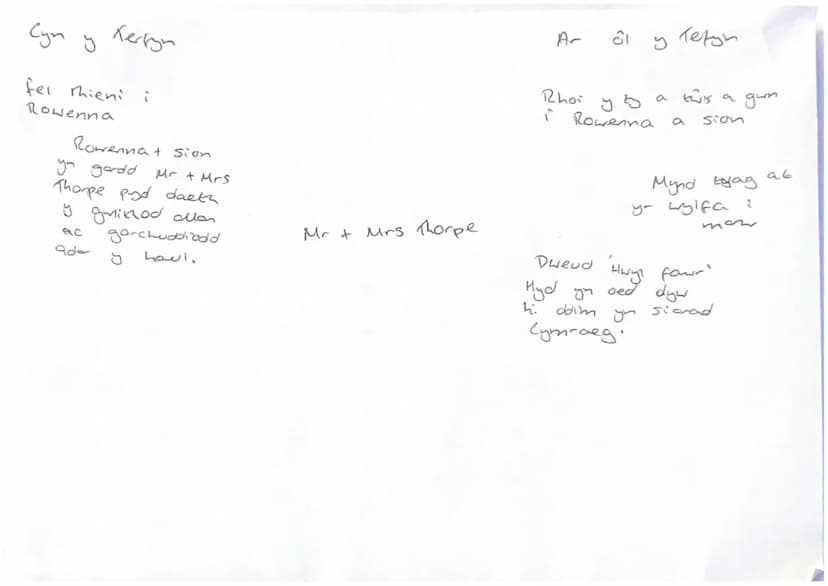 Cyn y Terfyn
fel rhieni i
Rowenna
Rowenna + sion
yn gardd Mr + Mrs
Thorpe pryd daeth
y allan
ac gorchuddiodd
y haul.
Mr + Mrs Thorpe
Ar ôl y Tefyn
Rhoi y tŷ a a gwn
i Rowenna a sion
Mynd at
yr wylfa i
marw
Dweud 'Hwyl fawr'
Hyd yn oed dyw
hi ddim yn siarad
Cymraeg.